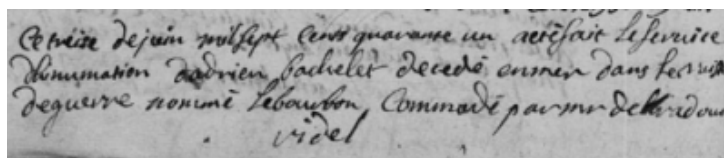 Ce treise de juin mil sept cens quarante un a eté fait le service
d'inhumation d'adrien bachelet decedé en mer dans le
de guerre nommé lebourbon, Commadé par mr de
videl